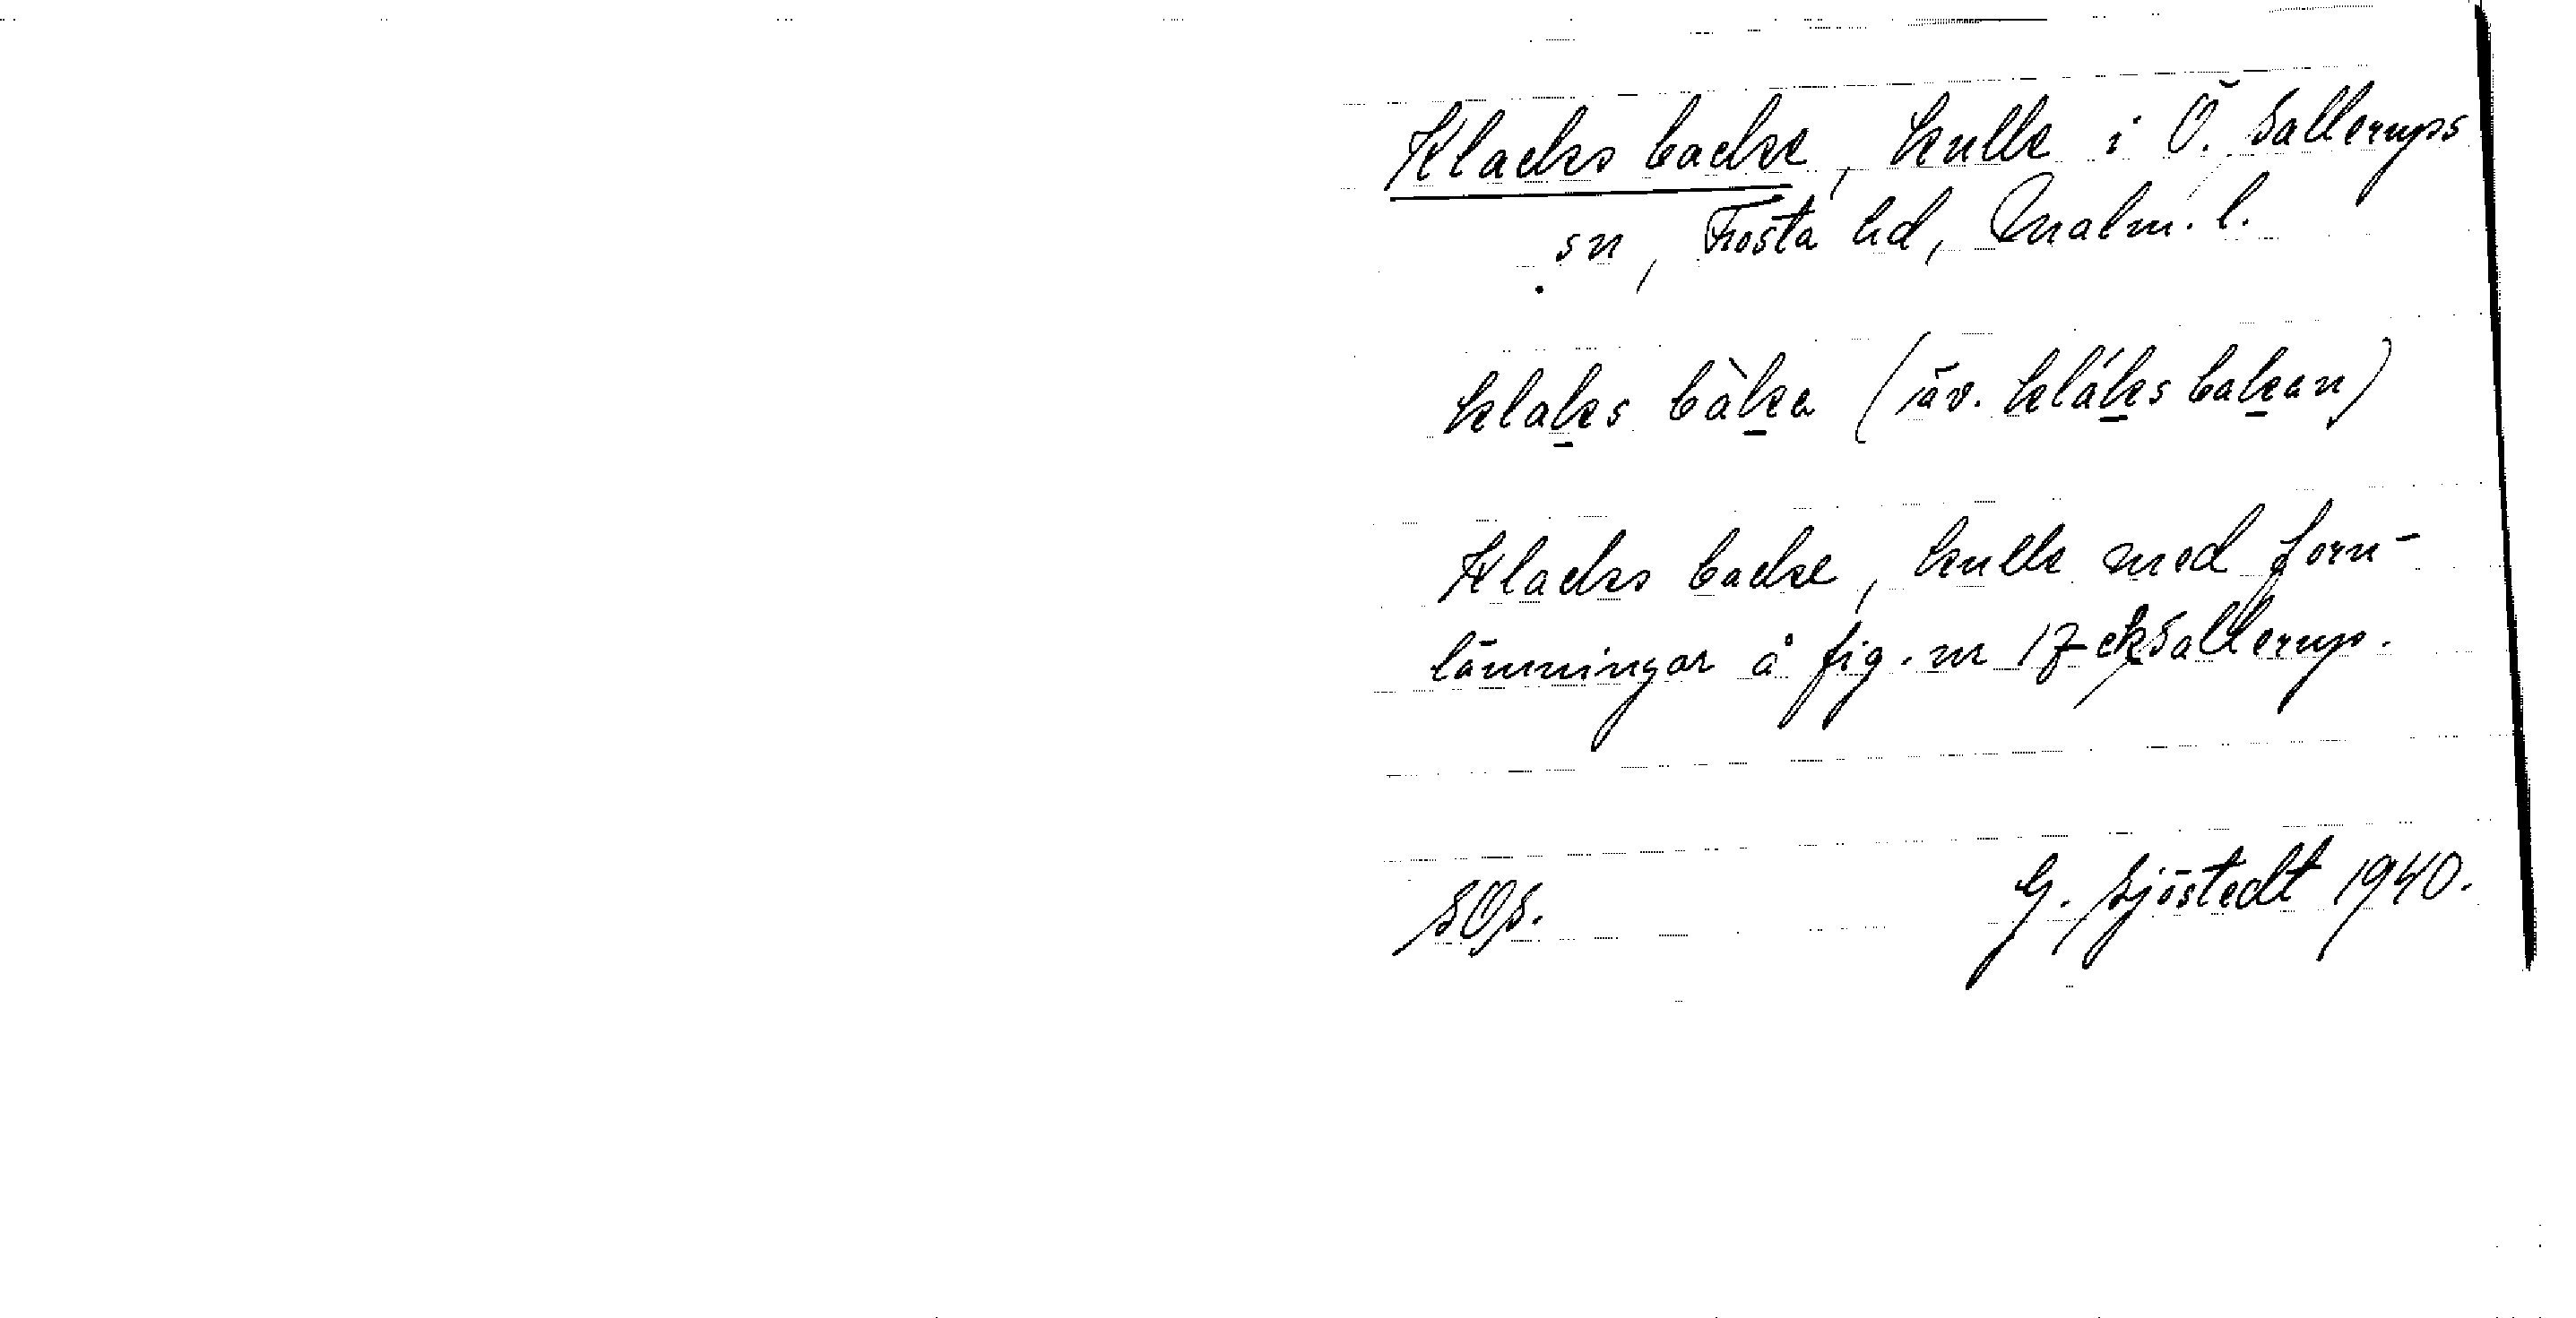 Klacks backe, kulle i Ö. Sallerups
sn, Frosta hd, Malm. l.
klaks bàka (äv. kláks bakan)
Klacks backe, kulle med forn-
lämningar å fig. nr 17 ek Sallerup.
SOS. G. Sjöstedt 1940.